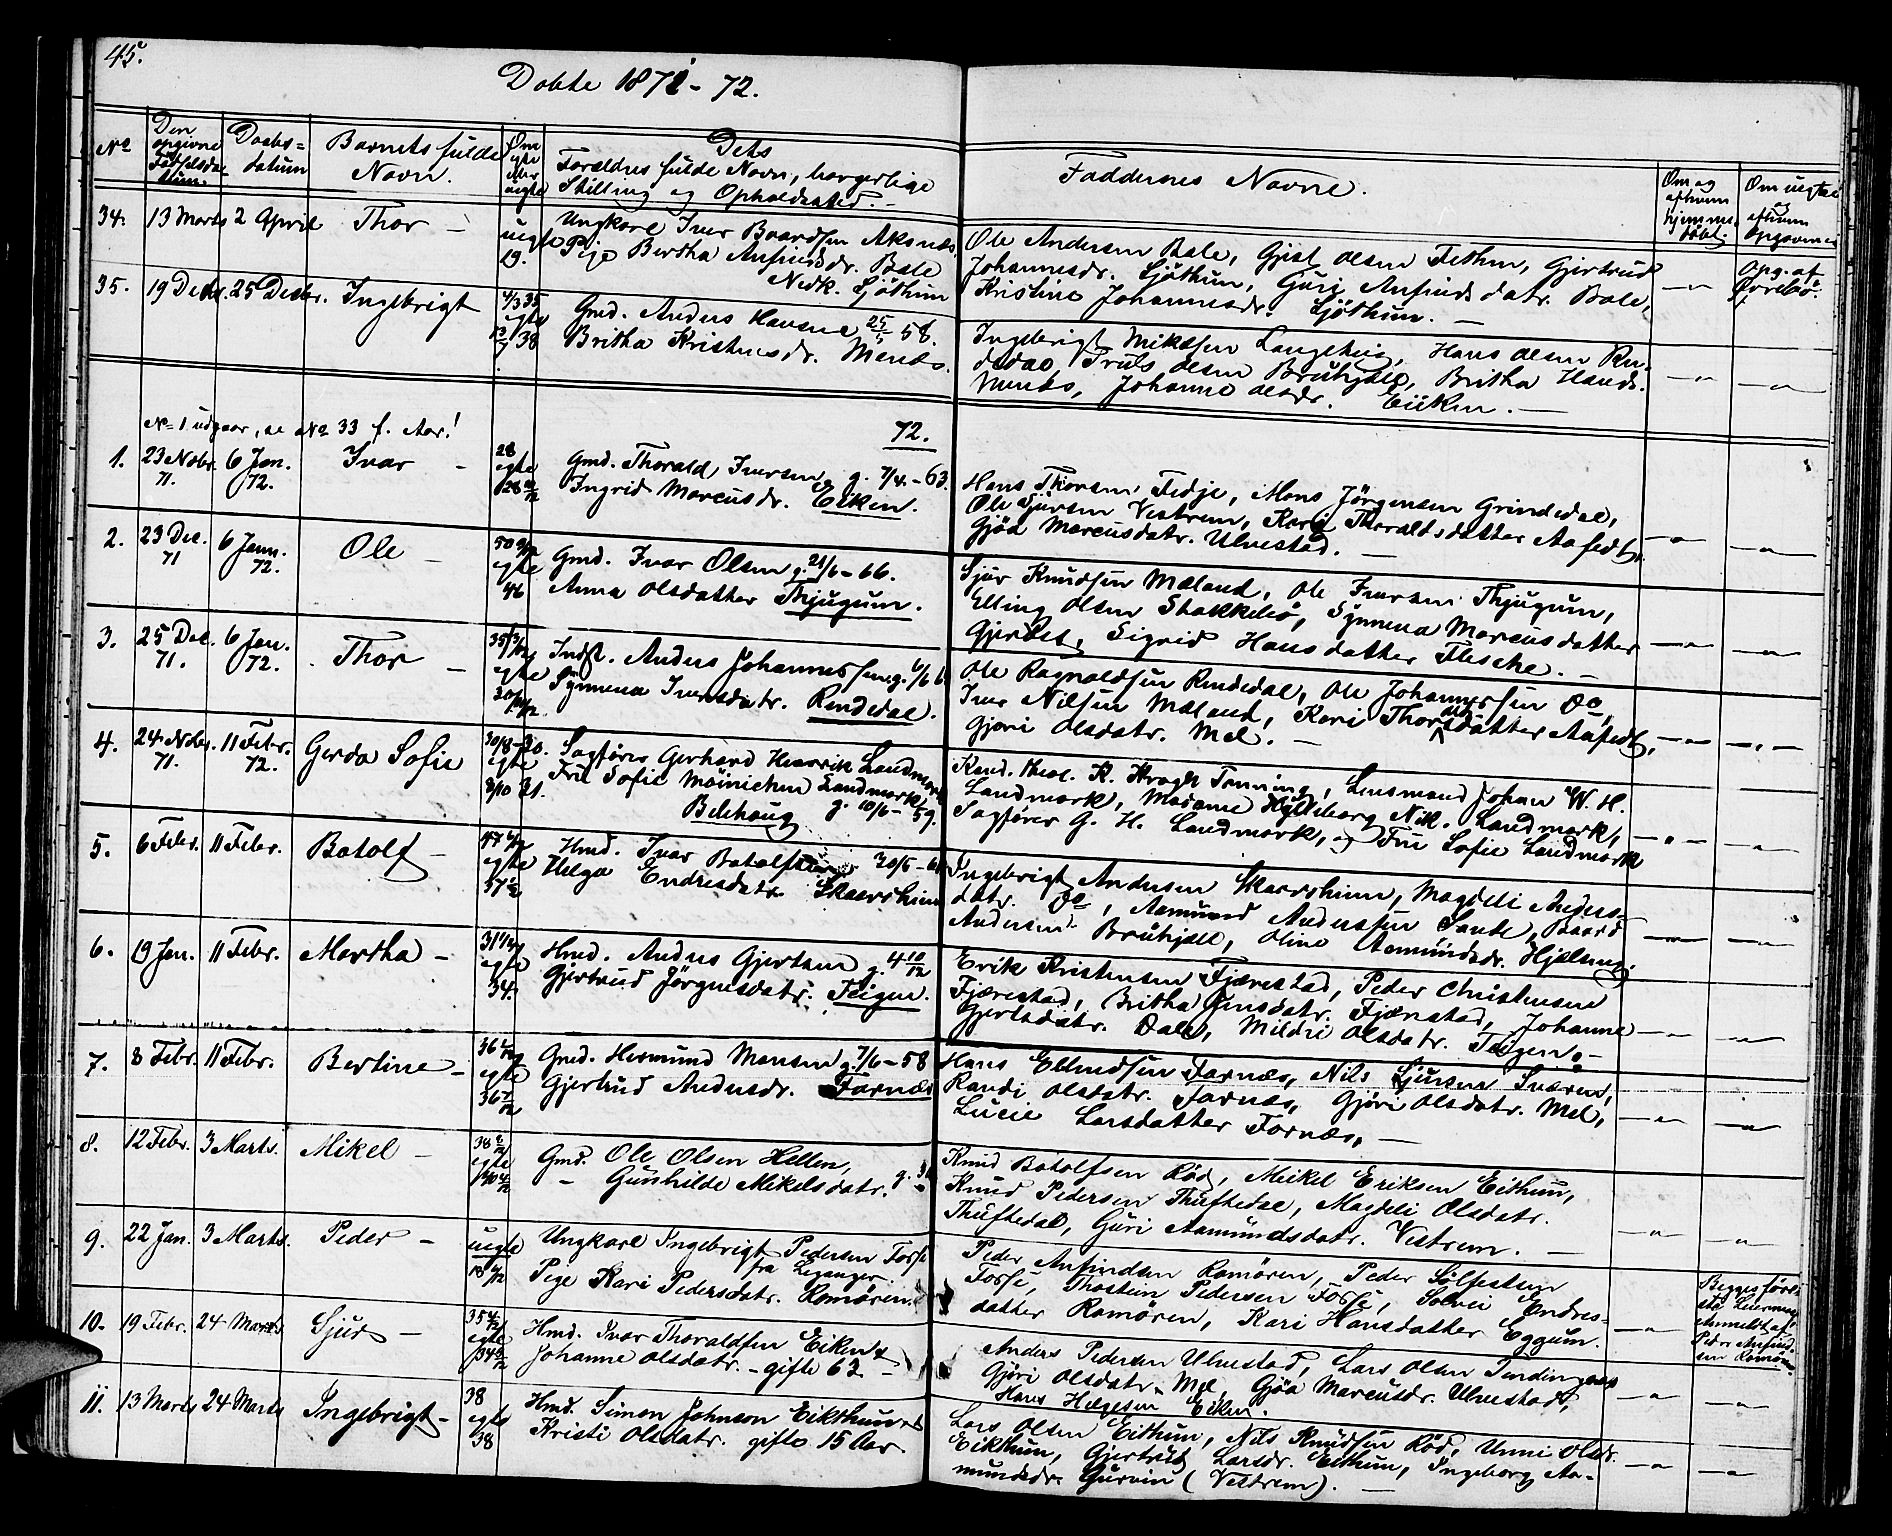 45.
Døbte 1871-72.
No
Den opgivne Fødselsdatum.
Daabsdatum
Barnets fulde Navn.
Om egte eller uegte
Dets Forældres fulde Navn, borgerlige Stilling og Opholdssted.
Faddernes Navne.
Om og af hvem hjemmedøbt
Om uegte og af hvem
34. 13 Marts 2 April Thor -
uegte 19.
Ungkarl Iver Baardsen Aksnæs,
Pige Bertha Anfindsdr. Bale
Nedk. Sjøthun
Ole Andersen Bale, Gjest Olsen Tethun, Gjertrud
Johannesdr. Sjøthun, Guri Anfindsdatr. Bale,
Kristine Johannesdr. Sjøthun. -
Opg. af
35. 19 Decbr. 25 Decbr. Ingebrigt
4/3 35 egte 38
Gmd. Anders Hansen 58.
Britha Kristensdr. Menes.
Ingebrigt Mikelsen Langeteig, Hans Olsen Rn-
dedal, Truls Olsen Bruhjell, Britha Hansdr.
Menes, Johanne Olsdr. Eiken. -
No 1 udgaar, se No 33 f. Aar!
72.
1. 23 Nobr. 71. 6 Jan. 72. Ivar -
28 egte
Gmd. Thorald Iversen g. 7/4 - 63.
Ingrid Marcusdr. Eiken.
Hans Thorsen Fedje, Mons Jørgensen Grindedal,
Ole Sjursen Vestrem, Kari Thoraldsdatter Aafedt,
Gjøa Marcusdatr. Ulvestad. -
2. 23 Dec. 71 6 Jann. 72. Ole -
egte 46
Gmd. Ivar Olsen g. 21/6 - 66.
Anna Olsdatter Thjugum.
Sjur Knudsen Mæland, Ole Iversen Thjugum,
Elling Olsen Stakkebø, Synneva Marcusdatter
Gjerdet, Sigrid Hansdatter Flesche. -
3. 25 Dec. 71. 6 Jan. 72. Thor -
egte
Indst. Anders Johannessen g.
Synneva Iversdatr. Rendedal.
Ole Ragnvaldsen Rendedal, Ole Johannessen Do,
Iver Nilsen Mæland, Kari Thoraldsdatter Aafedt,
Gjøri Olsdatr. Mel. -
4. 24 Nobr. 71. 11 Febr. 72. Gerda Sofie
30/8-30. egte 8/10 31.
Sagfører Gerhard Henrik Landmark
Fru Sofie Møinichen Landmark
Belehaug g. 10/6 - 59.
Kand. theol. K. Kragh Tønning, Lensmand Johan W. H.
Landmark, Madame Hildeborg Nik. Landmark,
Sagfører G. H. Landmark, og Fru Sofie Landmark
5. 6 Febr. 11 Febr. Botolf -
egte
Hmd. Ivar Botolfsen 30/5 -
Helga Endresdatr. Skaarsheim
Ingebrigt Andersen Skaarsheim, Magdeli Anders-
datr. Do, Aamund Andersen Sande, Baard
Andersen Bruhjell, Oline Aamundsdr. Hjelmeg.
6. 19 Jan. 11 Febr. Martha -
egte 34.
Hmd. Anders Gjertsen g.
Gjertrud Jørgensdatr. Teigen.
Erik Kristensen Fjærestad, Peder Christensen
Fjærestad, Britha Jensdatr. Fjærestad, Johanne
Gjertsdatr. Dale, Mildri Olsdatr. Teigen. -
7. 8 Febr. 11 Febr. Bertine -
egte
Gmd. Hermund Monsen g. 7/6 - 58
Gjertrud Andersdr. Farnæs
Hans Ellendsen Farnæs, Nils Sjursen Sværen,
Randi Olsdatr. Farnæs, Gjøri Olsdatr. Mel,
Lucie Larsdatter Farnæs, -
8. 12 Febr. 3 Marts. Mikel -
egte
Gmd. Ole Olsen Hellen,
- Gunhilde Mikelsdatr. g.
Knud Botolfsen Rød, Mikel Eriksen Eithun,
Knud Pedersen Thuftedal, Magdeli Olsdatr.
Thuftedal, Guri Aamundsdatr. Vestrem. -
9. 22 Jan. 3 Marts. Peder -
uegte
Ungkarl Ingebrigt Pedersen Forse
fra Leganger.
Pige Kari Pedersdatr. Romøren
Peder Anfindsen Romøren, Peder Sølfestsen
Forse, Thostein Pedersen Forse, Solvei Endres-
datter Romøren, Kari Hansdatter Eggum.
Anmeldt af
Peder Anfind-
sen Romøren
10. 19 Febr. 24 Marts Sjur -
egte
Hmd. Ivar Thoraldsen Eiken
Johanne Olsdatr. - gifte 62 -
Anders Pedersen Ulvestad, Lars Olsen
Gjøri Olsdatr. Mel, Gjøa Marcusdr. Ulvestad,
Hans Helgesen Eiken.
11. 13 Marts 24 Marts Ingebrigt -
38 egte 38
Hmd. Simon Johnson Eikthun
Kristi Olsdatr. gifte 15 Aar.
Lars Olsen Eithun, Nils Knudsen Rød, Unni Olsdr.
Eikthun, Gjertrud Larsdr. Eithun, Ingeborg Aa-
mundsdr. Gurvin (Vestrem). -